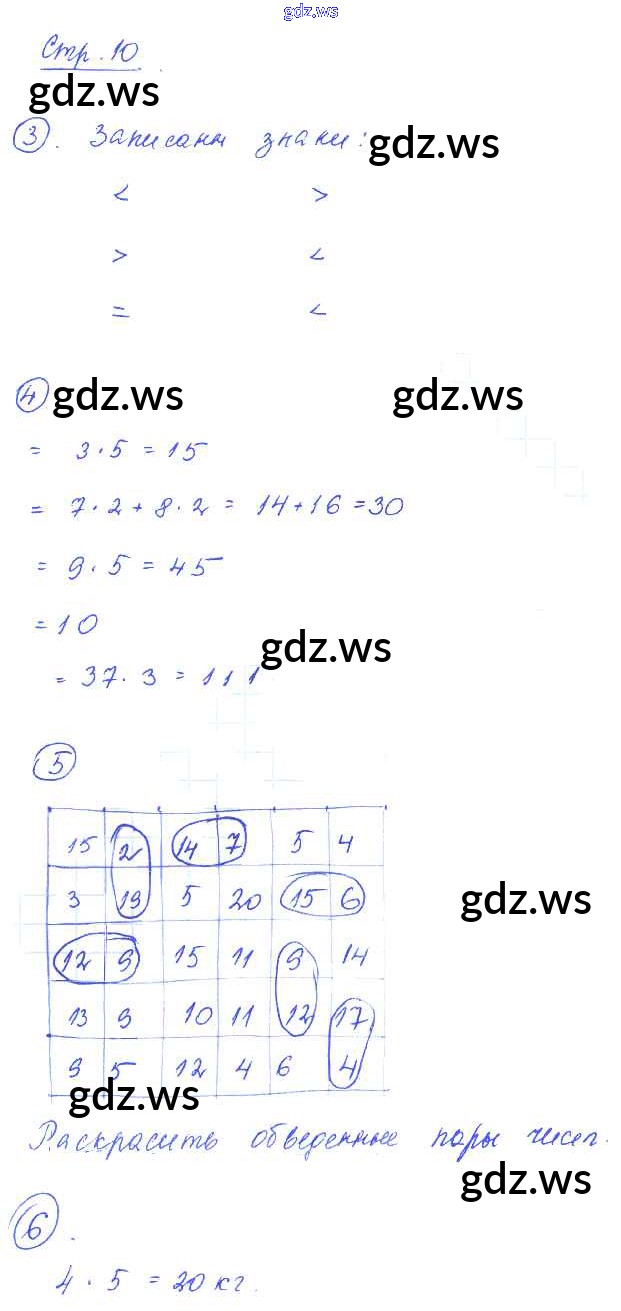 gdz.ws
Стр. 10
gdz.ws
3. Записаны знаки:
gdz.ws
< >
> <
= <
4
gdz.ws gdz.ws
= 3·5 = 15
= 7·2 + 8·2 = 14+16 = 30
= 9·5 = 45
= 10
gdz.ws
= 37·3 = 111
5
15 2 14 7 5 4
3 19 5 20 15 6
gdz.ws
12 9 15 11 9 14
13 9 10 11 12 17
9 5 12 4 6 4
gdz.ws
Раскрасить обведенные пары чисел.
gdz.ws
6.
4·5 = 20 кг.